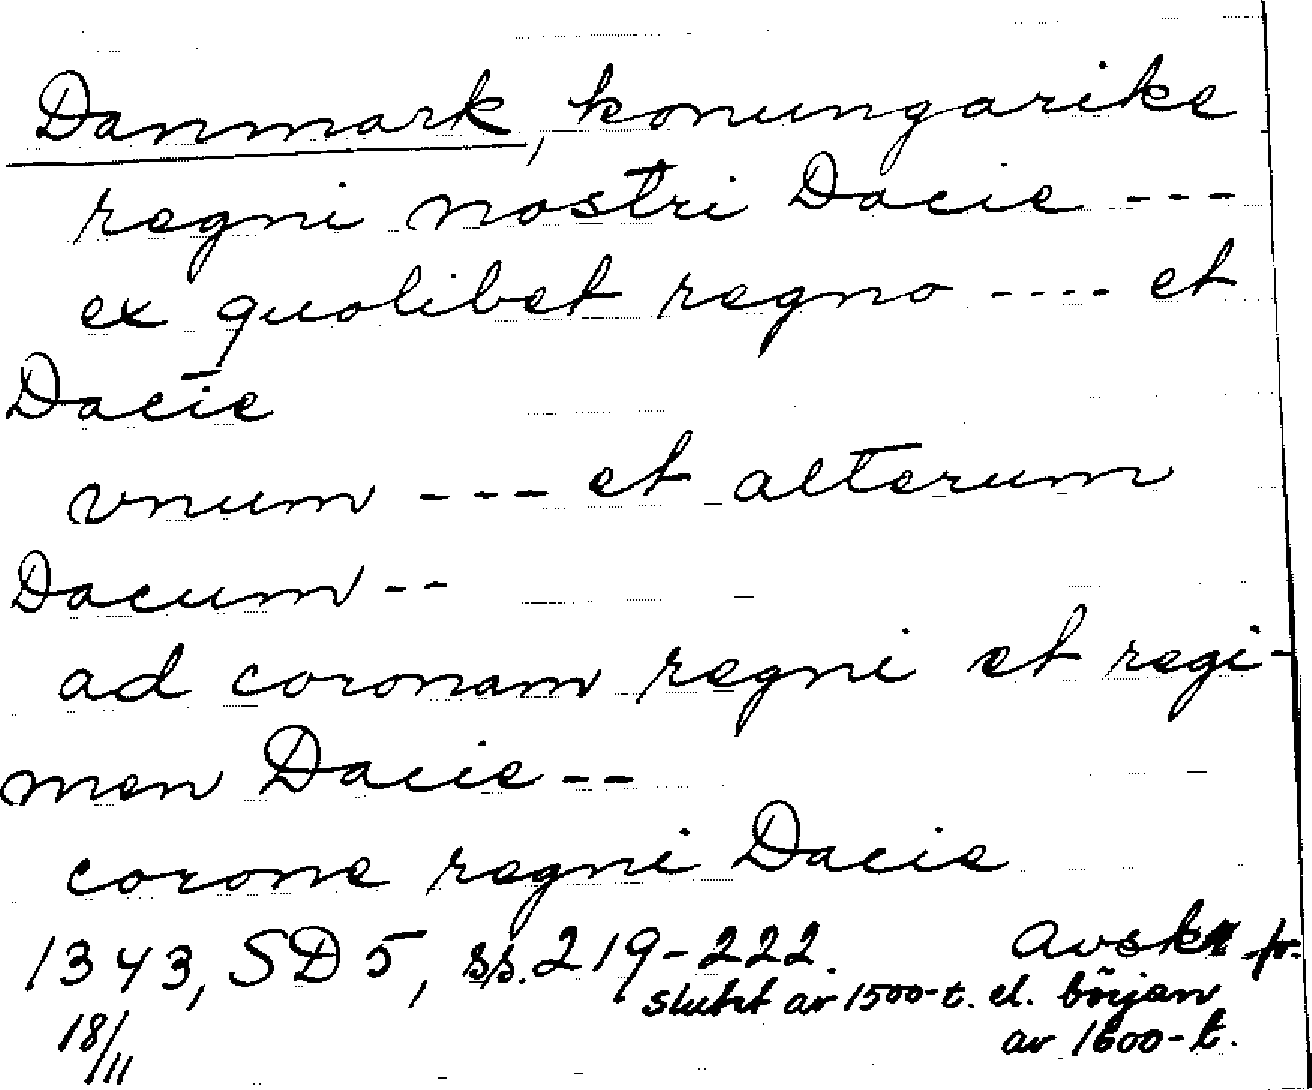 Danmark, konungarike
regni nostri Dacie ---
ex quolibet regno ---- et
Dacie
vnum --- et alterum
Dacum --
ad coronam regni et regi-
men Dacie --
corone regni Dacie
1343, SD 5, ss. 219-222. Avskr fr.
slutet av 1500-t. el. början
18/11 av 1600-t.